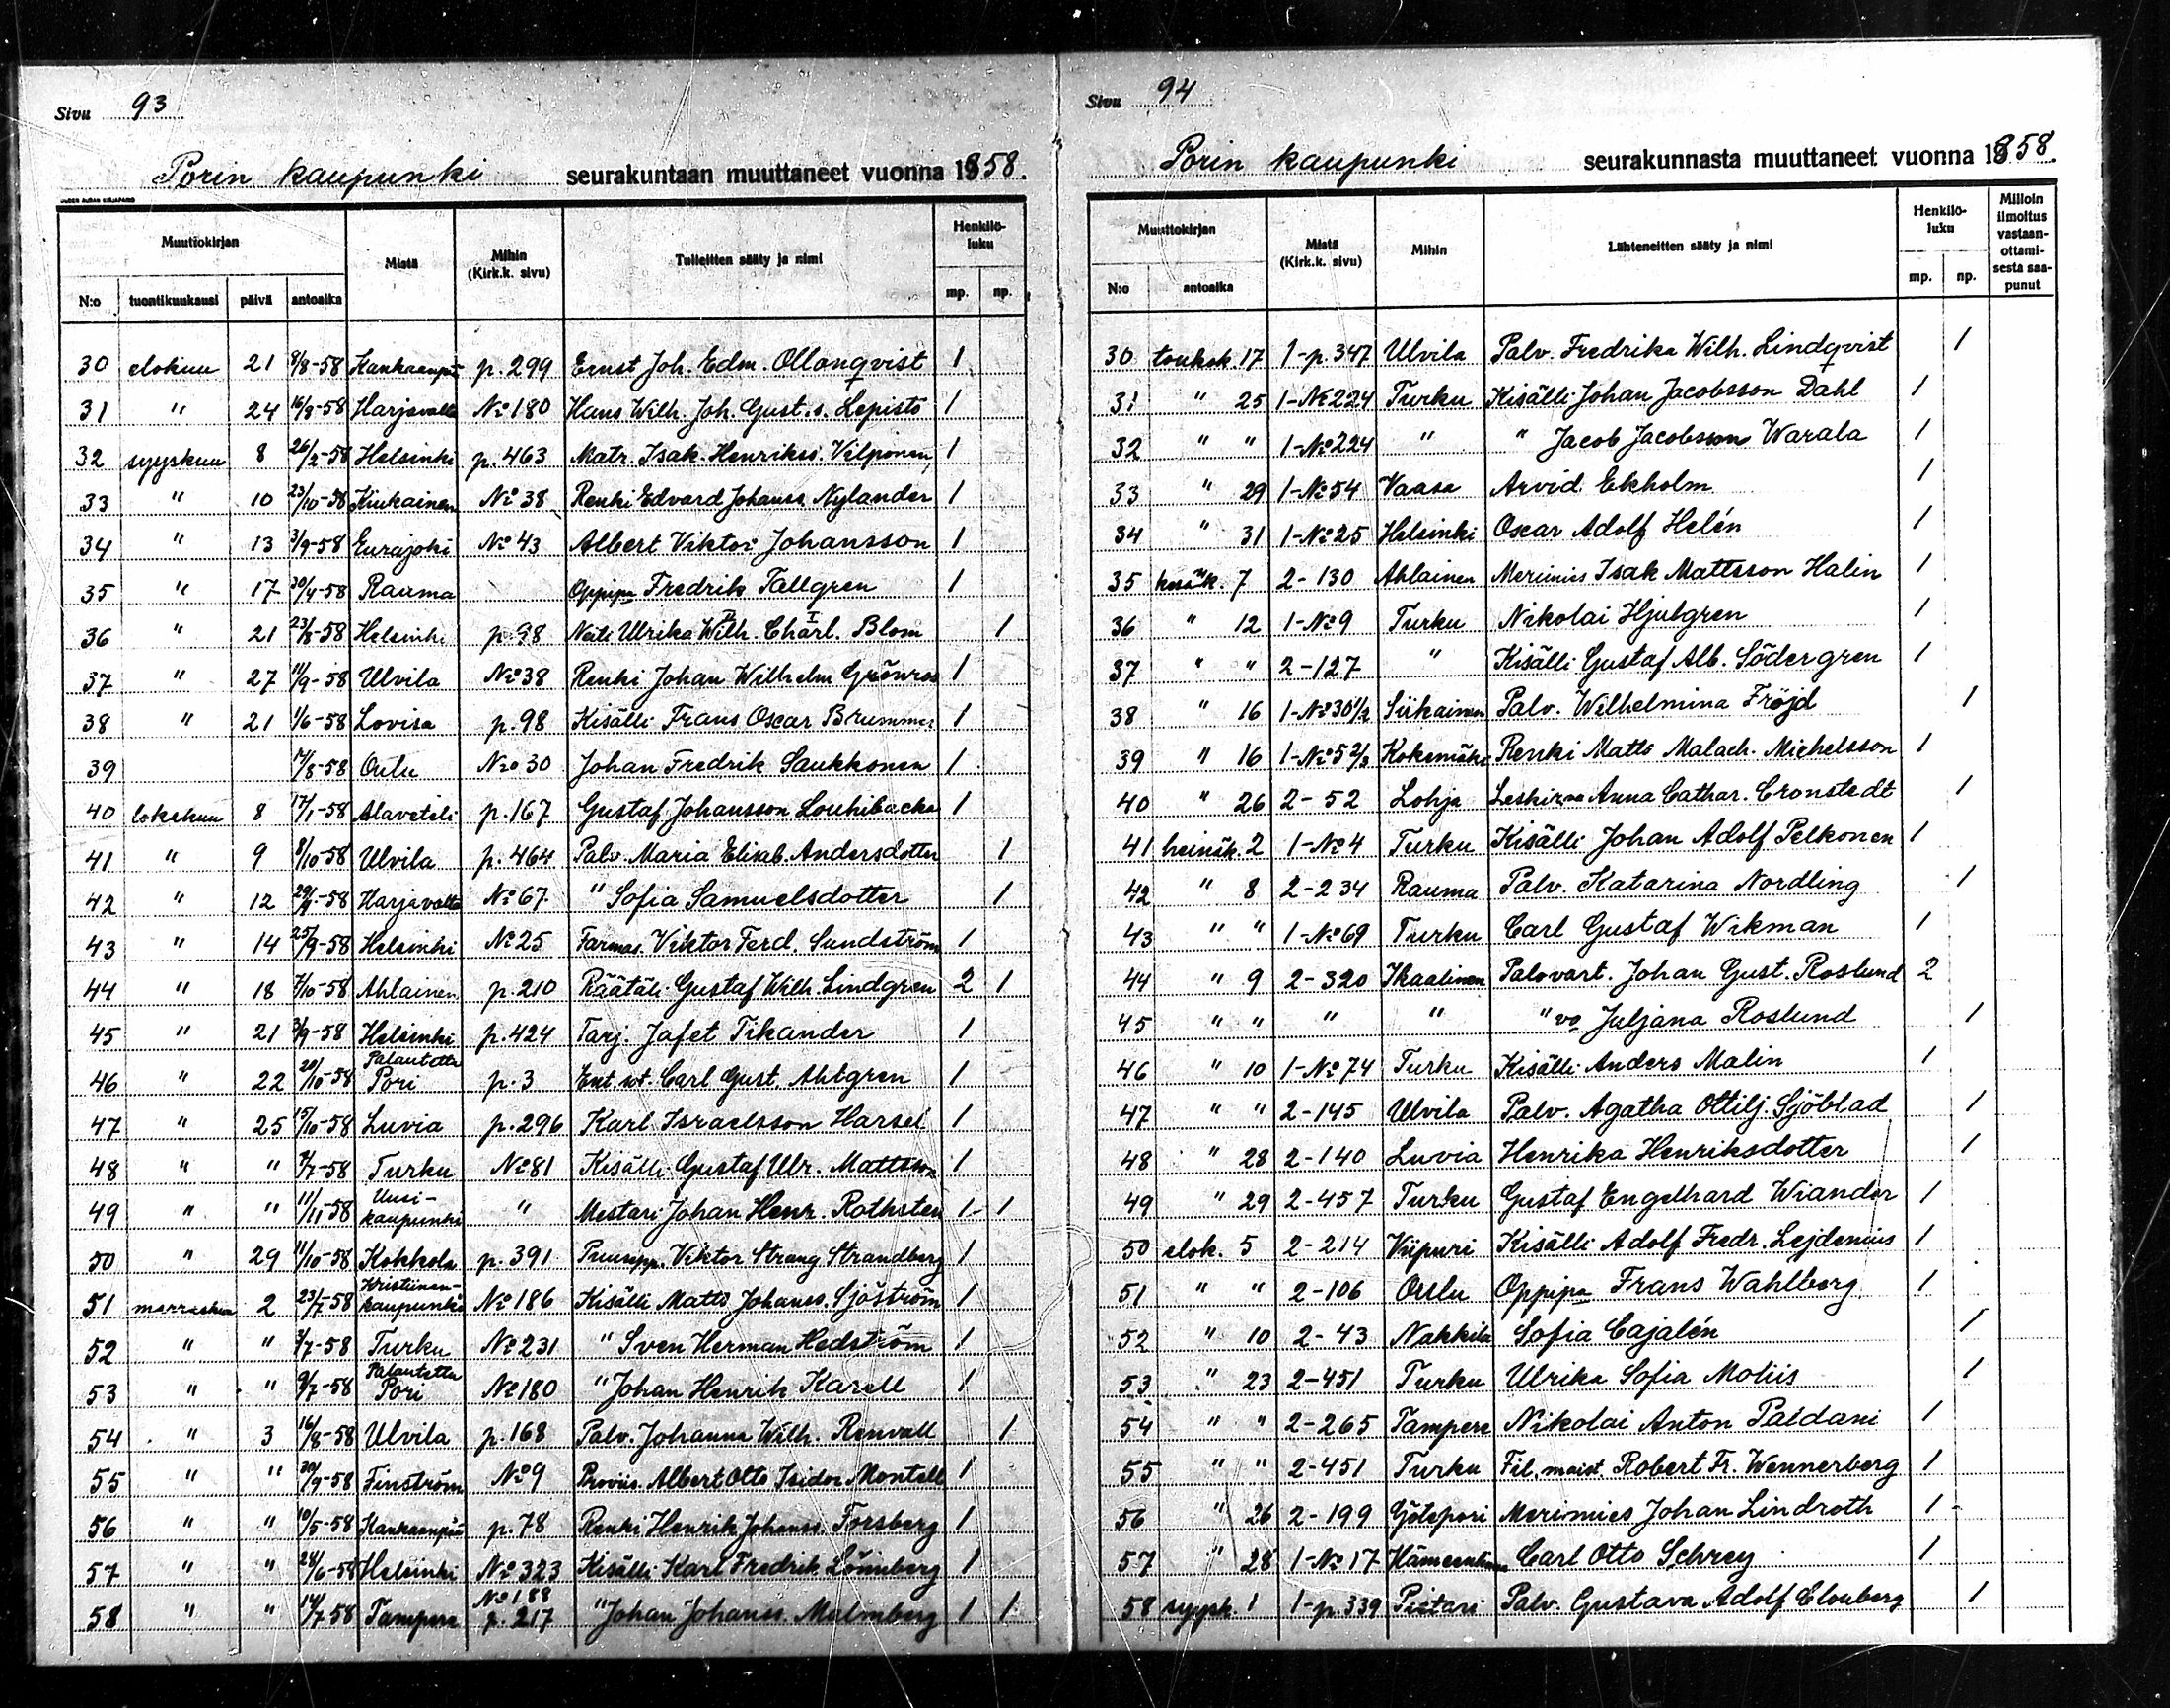 Sivu 93
Porin kaupunki seurakuntaan muuttaneet vuonna 1858.
UUDEN AURAN KIRJAPAINO
Muuttokirjan Mistä Mihin (Kirk.k. sivu) Tulleitten sääty ja nimi Henkilö-luku
N:o tuontikuukausi päivä antoaika mp. np.
30 elokuu 21 8/8-58 Kankaanpää p.299 Ernst Joh. Edm. Ollonqvist 1
31 " 24 16/8-58 Harjavalta No 180 Hans Wilh. Joh. Gust.s. Lepistö 1
32 syyskuu 8 26/2-58 Helsinki p.463 Matr. Isak Henrikss. Vilponen 1
33 " 10 23/10-58 Kiukainen No 38 Renki Edvard Johanss. Nylander 1
34 " 13 3/9-58 Eurajoki No 43 Albert Viktor Johansson 1
35 " 17 30/4-58 Rauma Oppipa Fredrik Tallgren 1
36 " 21 23/8-58 Helsinki p.98 Neiti Ulrika Wilh. Charl. Blom 1
37 " 27 11/9-58 Ulvila No 38 Renki Johan Wilhelm Grönroos 1
38 " 21 1/6-58 Lovisa p.98 Kisälli Frans Oscar Brummer 1
39 17/8-58 Oulu No 30 Johan Fredrik Saukkonen 1
40 lokakuu 8 17/1-58 Alaveteli p.167 Gustaf Johansson Louhibacka 1
41 " 9 8/10-58 Ulvila p.464 Palv. Maria Elisab. Andersdotter 1
42 " 12 29/9-58 Harjavalta No 67 " Sofia Samuelsdotter 1
43 " 14 25/9-58 Helsinki No 25 Farmas. Viktor Ferd. Sundström 1
44 " 18 7/10-58 Ahlainen p.210 Räätäli Gustaf Wilh. Lindgren 2 1
45 " 21 3/9-58 Helsinki p.424 Tarj. Jafet Tikander 1
46 " 22 20/10-58 Palautettu Pori p.3 Ent. sot. Carl Gust. Ahlgren 1
47 " 25 15/10-58 Luvia p.296 Karl Israelsson Harsel 1
48 " " 7/7-58 Turku No 81 Kisälli Gustaf Ulr. Mattsson 1
49 " " 11/11-58 Uusi-kaupunki " Mestari Johan Henr. Rothsten 1 1
50 " 29 11/10-58 Kokkola p.391 Puusepp. Viktor Strang Strandberg 1
51 marraskuu 2 23/7-58 Kristiinan-kaupunki No 186 Kisälli Matts Johanss. Sjöström 1
52 " " 3/7-58 Turku No 231 " Sven Herman Hedström 1
53 " " 9/7-58 Palautettu Pori No 180 " Johan Henrik Karell 1
54 " 3 16/8-58 Ulvila p.168 Palv. Johanna Wilh. Renvall 1
55 " " 30/9-58 Finström No 9 Proviis. Albert Otto Isidor Montell 1
56 " " 10/5-58 Kankaanpää p.78 Renki Henrik Johanss. Forsberg 1
57 " " 24/6-58 Helsinki No 323 Kisälli Karl Fredrik Lönnberg 1
58 " " 14/7-58 Tampere No 189 p.217 " Johan Johanss. Malmberg 1 1
Sivu 94
Porin kaupunki seurakunnasta muuttaneet vuonna 1858.
Muuttokirjan Mistä (Kirk.k. sivu) Mihin Lähteneitten sääty ja nimi Henkilö-luku Milloin ilmoitus vastaan-ottami-sesta saa-punut
N:o antoaika mp. np.
30 toukok. 17 1-p.347 Ulvila Palv. Fredrika Wilh. Lindqvist 1
31 " 25 1-No 224 Turku Kisälli Johan Jacobsson Dahl 1
32 " " 1-No 224 " " Jacob Jacobsson Warala 1
33 " 29 1-No 54 Vaasa Arvid Ekholm 1
34 " 31 1-No 25 Helsinki Oscar Adolf Helén 1
35 kesäk. 7 2-130 Ahlainen Merimies Isak Mattsson Halin 1
36 " 12 1-No 9 Turku Nikolai Hjulgren 1
37 " " 2-127 " Kisälli Gustaf Alb. Södergren 1
38 " 16 1-No 30 1/2 Siikainen Palv. Wilhelmina Fröjd 1
39 " 16 1-No 52/3 Kokemäki Renki Matts Malach. Michelsson 1
40 " 26 2-52 Lohja Leskirva Anna Cathar. Cronstedt 1
41 heinäk. 2 1-No 4 Turku Kisälli Johan Adolf Pelkonen 1
42 " 8 2-234 Rauma Palv. Katarina Nordling 1
43 " " 1-No 69 Turku Carl Gustaf Wikman 1
44 " 9 2-320 Ikaalinen Palovart. Johan Gust. Roslund 2
45 " " " " " vo Juljana Roslund 1
46 " 10 1-No 74 Turku Kisälli Anders Malin 1
47 " " 2-145 Ulvila Palv. Agatha Ottilj. Sjöblad 1
48 " 28 2-140 Luvia Henrika Henriksdotter 1
49 " 29 2-457 Turku Gustaf Engelhard Wiander 1
50 elok. 5 2-214 Viipuri Kisälli Adolf Fredr. Lejdenius 1
51 " " 2-106 Oulu Oppipa Frans Wahlberg 1
52 " 10 2-43 Nakkila Sofia Cajalén 1
53 " 23 2-451 Turku Ulrika Sofia Moliis 1
54 " " 2-265 Tampere Nikolai Anton Paldani 1
55 " " 2-451 Turku Fil. maist. Robert Fr. Wennerberg 1
56 " 26 2-199 Götepori Merimies Johan Lindroth 1
57 " 28 1-No 17 Hämeenlinna Carl Otto Schrey 1
58 syysk. 1 1-p.339 Pietari Palv. Gustava Adolf Clouberg 1